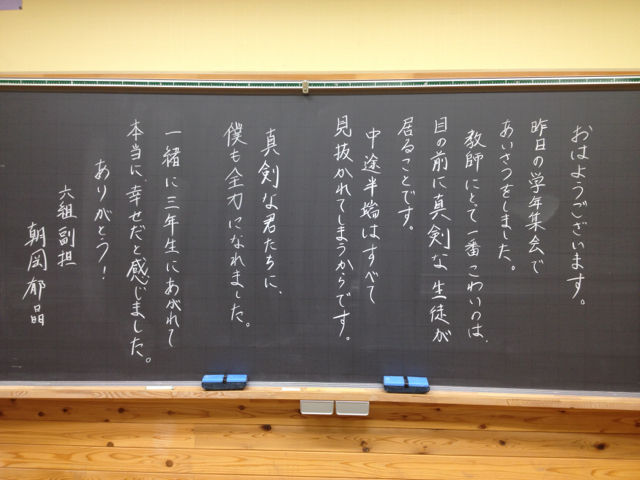 おはようございます。
昨日の学年集会で
あいさつをしました。
教師にとって一番こわいのは、
目の前に真剣な生徒が
居ることです。
中途半端はすべて
見抜かれてしまうからです。
真剣な君たちに、
僕も全力になれました。
一緒に三年生にあがれて
本当に幸せだと感じました。
ありがとう!
六組副担
朝岡郁晶